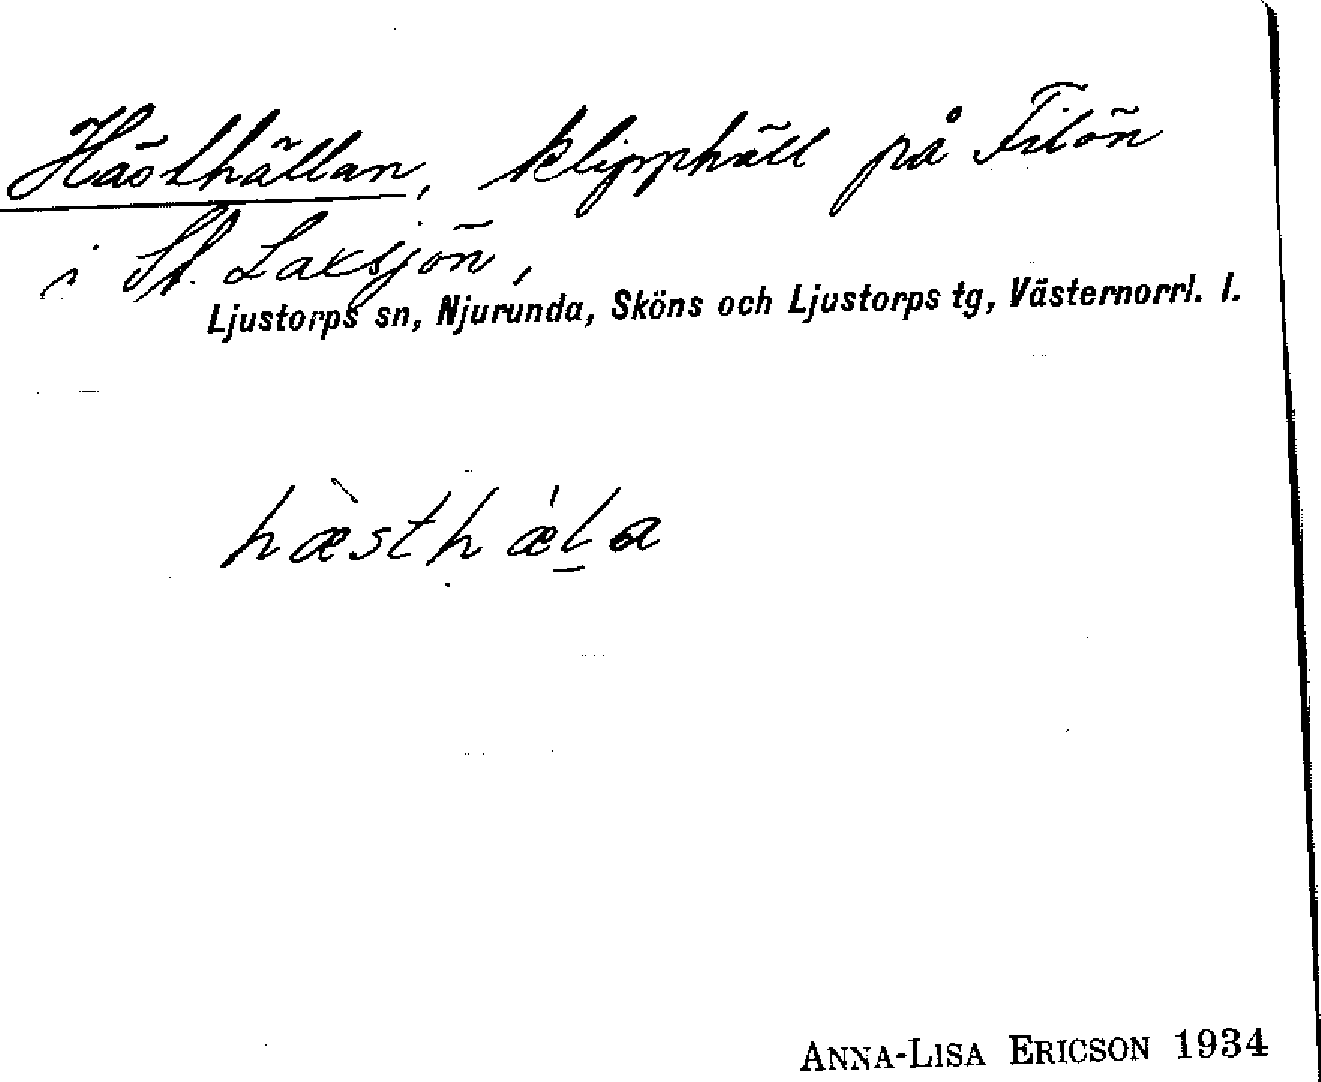 Hästhällan, klipphäll på Filön
i St. Laxsjön,
Ljustorps sn, Njurunda, Sköns och Ljustorps tg, Västernorrl. l.
hæ̀sthǽl̠a
ANNA-LISA ERICSON 1934